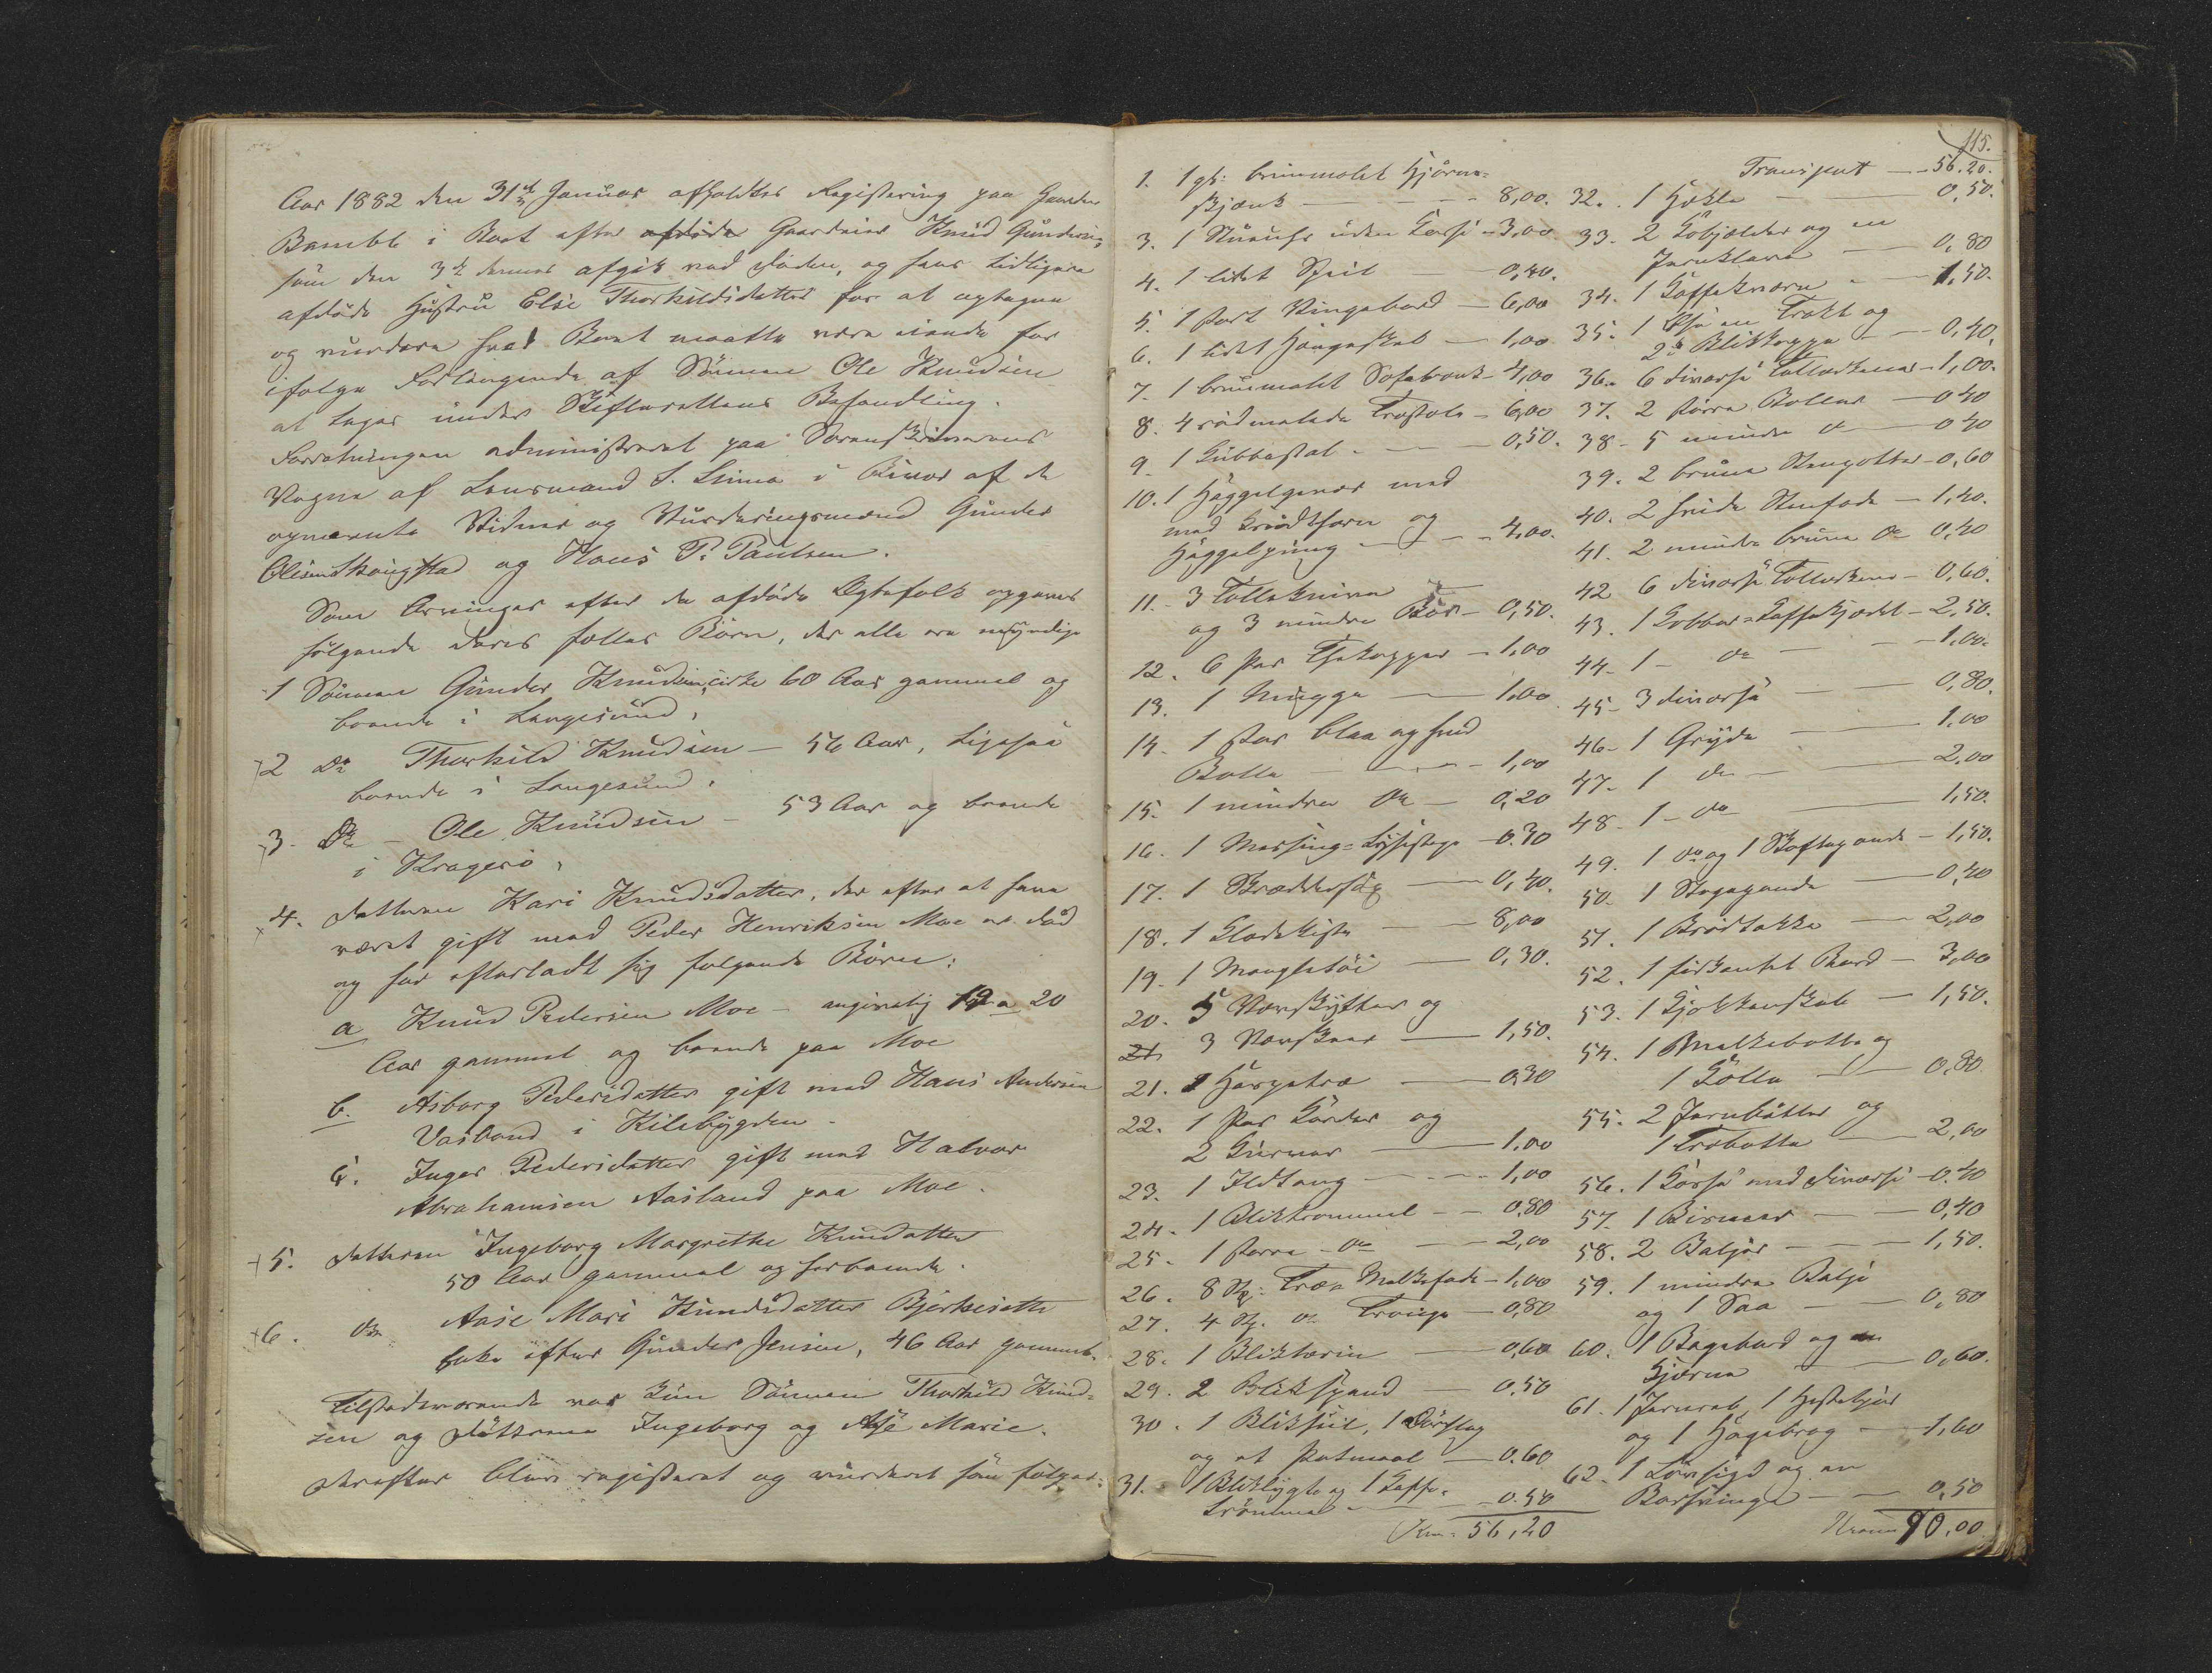 Aar 1882 den 31te Januar afholdtes Registrering paa Gaarden
Bamble i Boet efter afdøde Gaardeier Knud Gundersen
som den 3de dennes afgik ved Døden, og hans tidligere
afdøde Hustru Else Thorkildsdatter for at optegne
og vurdere hvad Boet maatte være eiende for
ifølge Forlangende af Sønnen Ole Knudsen
at tages under Skifterettens Behandling.
Forretningen administreret paa Sorenskriverens
Vegne af Lensmand S. Linna i Overvær af de
opnævnte Vidner og Vurderingsmænd Gunder
Olsen Skougstad og Hans P. Paulsen.
Som Arvinger efter de afdøde Ægtefolk opgaves
følgende deres fælles Børn, der alle ere myndige
1 Sønnen Gunder Knudsen, cirka 60 Aar gammel og
boende i Langesund,
2 Do Thorkild Knudsen - 56 Aar, ligesaa
boende i Langesund.
3. Do - Ole Knudsen - 53 Aar og boende
i Kragerø,
4. Datteren Kari Knudsdatter, der efter at have
været gift med Peder Henriksen Moe er død
og har efterladt sig følgende Børn:
a Knud Pedersen Moe - angivelig 19 a 20
Aar gammel og boende paa Moe
b. Asborg Pedersdatter gift med Hans Andersen
Vasbond i Kilebygden.
c. Inger Pedersdatter gift med Halvor
Abrahamsen Aasland paa Moe.
5. Datteren Ingeborg Margrethe Knudsdatter
50 Aar gammel og herboende.
6. Do Aase Mari Knudsdatter Bjerkesætte
Enke efter Gunder Jensen, 46 Aar gammel.
Tilstedeværende var kun Sønnen Thorkild Knud-
sen og Døttrene Ingeborg og Aase Marie.
Derefter blev registreret og vurderet som følger:
115.
1. 1 gl: brunmalet Hjørne-
skjænk - 8,00.
3. 1 Stueuhr uden Kasse - 3,00
4. 1 lidet Speil - 0,40.
5. 1 stort Vingebord - 6,00
6. 1 lidet Hængeskab - 1,00
7. 1 brunmalet Sofabænk - 4,00
8. 4 rødmalede Træstole - 6,00
9. 1 Kubbestol - 0,50.
10. 1 Haggelgevær med
med Krudthorn og
Haggelpung - 4,00.
11. 3 Tollekniver
og 3 mindre Bør - 0,50.
12. 6 Par Thekopper - 1,00
13. 1 Mugge - 1,00
14. 1 stor blaa og hvid
Bolle - 1,00
15. 1 mindre Do - 0,20
16. 1 Messing-Lysestage - 0.30
17. 1 - 0,40.
18. 1 Klædekiste - 8,00
19. 1 Mangletøi - 0,30.
20. 5 Vævskytter og
21 3 Vævskeer - 1,50.
21. 1 Harpetræ - 0,30
22. 1 Par Karder og
2 Kurver - 1.00
23. 1 Ildtang - 1,00
24. 1 Bliktrommel - 0,80
25. 1 større Do - 2,00
26. 8 St: Træ Melkefade - 1,00
27. 4 St. Do Trouge - 0,80
28. 1 Blikterin - 0,60
29. 2 Blikspand - 0,50
30. 1 Bliksiil, 1 Dørslag
og et Potmaal - 0.60
31. 1 Bliklygte og 1 Kaffe-
tromme - 0.50
Krn: 56,20
Transport - 56.20.
32. 1 Hekle - 0,50.
33. 2 Kobjelder og en
Jernklave - 0,80
34. 1 Kaffekværn - 1,50.
35. 1 Øse en Trakt og
2 Blikkopper - 0,40,
36. 6 diverse Tallerkener - 1,00.
37. 2 større Boller - 0 40
38. 5 mindre Do - 0 40
39. 2 brune Stenpotter - 0,60
40. 2 hvide Stenfade - 1,40.
41. 2 mindre brune Do 0,40
42 6 diverse Tallerkener - 0,60.
43. 1 Kobber-Kaffekjedel - 2,50.
44. 1 - Do - 1.00.
45. 3 diverse - 0,80.
46. 1 Gryde - 1.00
47. 1 Do - 2,00
48. 1 - Do - 1,50.
49. 1 Do og 1 Skaftepande - 1,50.
50. 1 Stegepande - 0,40
51. 1 Brødtakke - 2,00
52. 1 firkantet Bord - 3,00
53. 1 Kjøkkenskab - 1,50.
54. 1 Melkebøtte og
1 Kolle - 0,80
55. 2 Jernbøtter og
1 Træbøtte - 2,00
56. 1 Kasse med diverse - 0.40
57. 1 Bismer - 0,40
58. 2 Baljer - 1,50.
59. 1 mindre Balje
og 1 Saa - 0,80
60. 1 Bagebord og en
Kjerne - 0,60.
61. 1 Jernrab, 1 Hesteljaa
og 1 - 1,60
62. 1 Løvsigd og en
- 0,50
Kroner 90.00